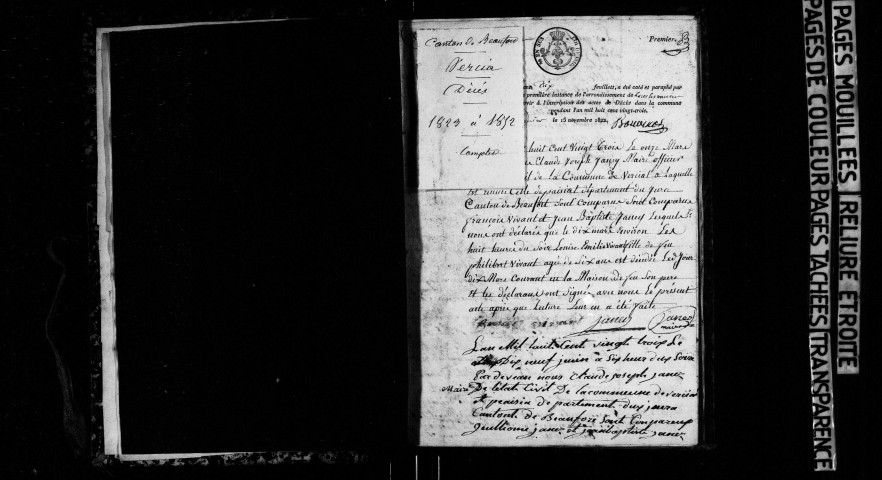 Canton de Beaufort
Vercia
Décés
1823 à 1852
Complet
Premier
feuillets, a été coté et paraphé par
première instance de l'arrondissement de
servir à l'inscription des actes de Décès dans la commune
pendant l'an mil huit cent vingt-trois.
le 15 novembre 1822,
huit Cent Vingt Trois le onze Mars
Claude Joseph Janey Maire officier
de la Commune de Vercial a Laquelle
est reunie Celle de paisiat département du Jura
Canton de Beaufort Sont Comparus Sont Comparus
francois Vivant et Jean Baptiste Janey Lesquels
nous ont déclarés que le dix mars Environ Les
huit heures du Soir Louise Emilie Vivant fille de feu
philibert Vivant agé de Six ans est décédé Led Jour
dix Mars Courant en la Maison de feu Son pere
Et les déclarans ont Signés avec nous le présent
acte après que Lecture Leur en a été faite
janey
Janey
maire
Lan Mil huit Cent vingt trois le
Dix neuf juin a Six heur du Soir
Par devean nous Claude joseph janey
Maire De letat Civil De la commune de vercia
et peaisia de partement du jura
Cantont de Beaufort Sont Comparus
guilliome janey et jean baptiste janey
PAGES MOUILLEES RELIURE ETROITE
PAGES DE COULEUR PAGES TACHEES TRANSPARENCE